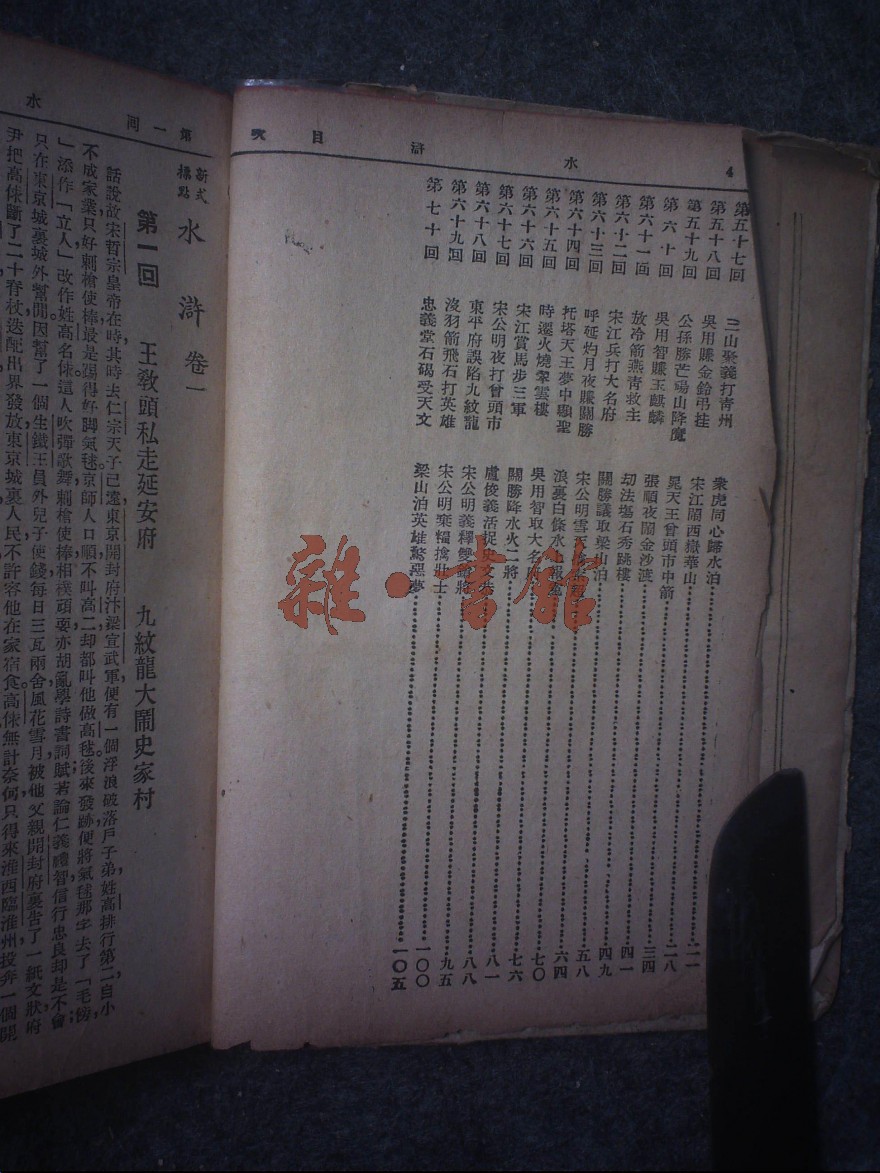 4 水滸目次
第五十七回 三山聚義打青州 衆虎同心歸水泊 二二
第五十八回 吳用賺金鈴吊挂 宋江鬧西嶽華山 二八
第五十九回 公孫勝芒碭山降魔 晁天王曾頭市中箭 三四
第六十回 吳用智賺玉麒麟 張順夜鬧金沙渡 四一
第六十一回 放冷箭燕青救主 刼法塲石秀跳樓 四九
第六十二回 宋江兵打大名府 關勝議取梁山泊 五八
第六十三回 呼延灼月夜賺關勝 宋公明雪天 六四
第六十四回 托塔天王夢中顯聖 浪裏白條水上報冤 七〇
第六十五回 時遷火燒翠雲樓 吳用智取大名府 七六
第六十六回 宋江賞馬步三軍 關勝降水火二將 八一
第六十七回 宋公明夜打曾頭市 盧俊義活捉史文恭 八八
第六十八回 東平府誤陷九紋龍 宋公明義釋雙鎗將 九五
第六十九回 沒羽箭飛石打英雄 宋公明棄糧擒壯士 一〇〇
第七十回 忠義堂石碣受天文 梁山泊英雄驚惡夢 一〇五
第一回 水
新式標點 水滸卷一
第一回 王敎頭私走延安府 九紋龍大鬧史家村
話說故宋哲宗皇帝在時，其時去仁宗天子已遠，東京開封府汴梁宣武軍便有一個浮浪破落戶子弟，姓高，排行第二，自小
不成家業，只好刺槍使棒，最是踢得好脚氣毬，京師人口順，不叫高二，却都叫他做高毬。後來發跡，便將氣毬那字去了「毛傍
」，添作「立人」，改作姓高，名俅。這人吹彈歌舞，刺槍使棒，相撲頑耍，亦胡亂學詩書詞賦；若論仁義禮智，信行忠良，却是不會；
只在東京城裏城外幫閒。因幫了一個生鐵王員外兒子使錢，每日三瓦兩舍，風花雪月，被他父親開封府裏告了一紙文狀，府
尹把高俅斷了二十脊杖，迭配出界發放，東京城裏人民不許容他在家宿食。高俅無計奈何，只得來淮西臨淮州投奔一個開
雜·書館